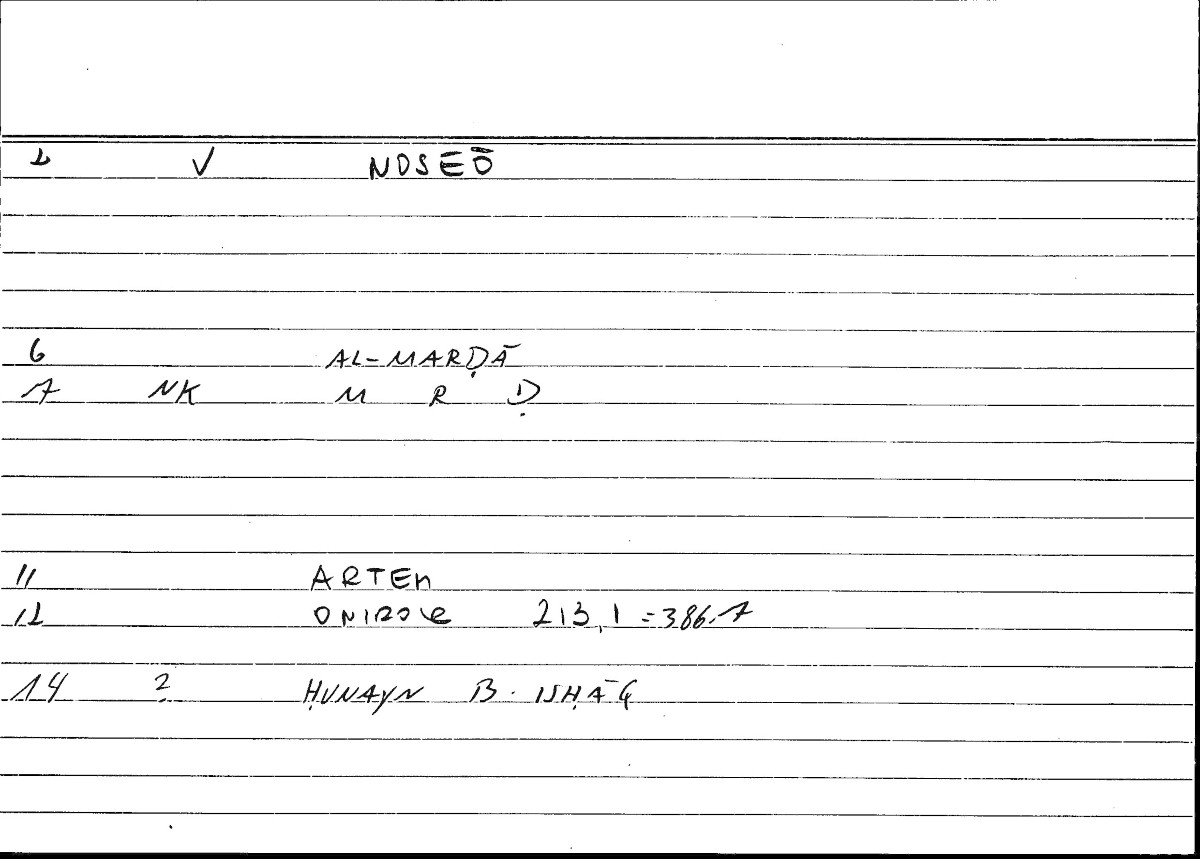 1 V NOSEŌ
6 AL-MARḌĀ
7 NK M R Ḍ
11 ARTEM
12 ONIROCR 213,1 = 386.7
14 ? ḤUNAYN B. ISḤĀQ